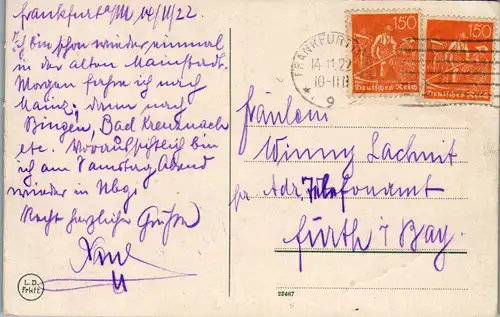 Frankfurt a/M 14/11/22
Ich bin schon wieder einmal
in der alten Mainstadt.
Morgen fahre ich nach
Mainz; dann nach
Bingen, Bad Kreuznach
etc. Voraussichtlich bin
ich am Samstag Abend
wieder in Nbg.
Recht herzliche Grüße
L.D.
Frkft.
FRANKFURT
14.11.22
10-11
* 9
150
Deutsches Reich
150
Deutsches Reich
Fräulein
Winny Lachnit
pr. Adr. Telefonamt
Fürth i Bay.
23467